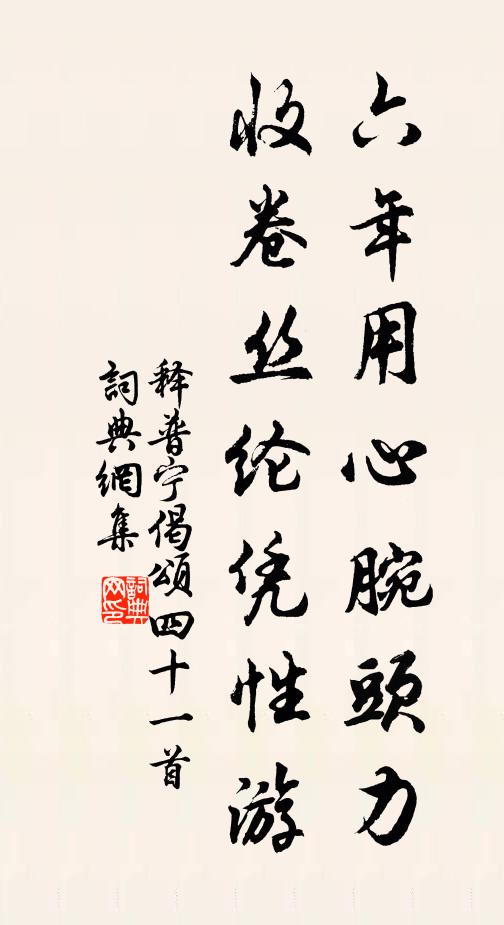 六年用心腕頭力
收卷丝纶凭性游
释普宁偈頌四十一首
詞典網集
詞典网印